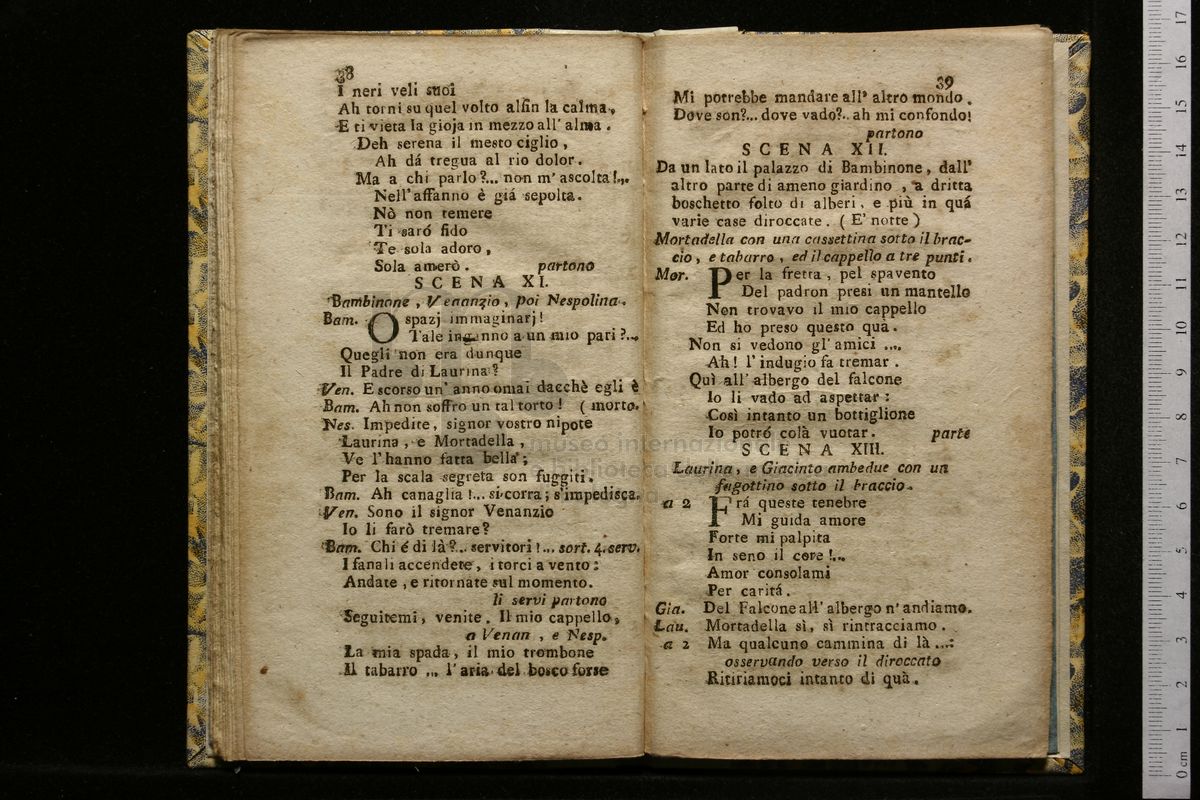 38
I neri veli suoi
Ah torni su quel volto alfin la calma,
E ti vieta la gioja in mezzo all' alma.
Deh serena il mesto ciglio,
Ah dá tregua al rio dolor.
Ma a chi parlo?... non m' ascolta!...
Nell' affanno è giá sepolta.
Nò non temere
Ti saró fido
Te sola adoro,
Sola amerò. partono
SCENA XI.
Bambinone, Venanzio, poi Nespolina.
Bam. O spazj immaginarj!
Tale inganno a un mio pari?...
Quegli non era dunque
Il Padre di Laurina?
Ven. E scorso un' anno omai dacchè egli è
Bam. Ah non soffro un tal torto! (morto.
Nes. Impedite, signor vostro nipote
Laurina, e Mortadella,
Ve l' hanno fatta bella;
Per la scala segreta son fuggiti.
Bam. Ah canaglia!... si corra; s'impedisca.
Ven. Sono il signor Venanzio
Io li farò tremare?
Bam. Chi é di là?... servitori!... sort. 4. serv.
I fanali accendete, i torci a vento:
Andate, e ritornate sul momento.
li servi partono
Seguitemi, venite. Il mio cappello,
a Venan, e Nesp.
La mia spada, il mio trombone
Il tabarro ... l' aria del bosco forse
39
Mi potrebbe mandare all' altro mondo.
Dove son?... dove vado?.. ah mi confondo!
partono
SCENA XII.
Da un lato il palazzo di Bambinone, dall'
altro parte di ameno giardino, a dritta
boschetto folto di alberi, e più in quá
varie case diroccate. (E' notte)
Mortadella con una cassettina sotto il brac-
cio, e tabarro, ed il cappello a tre punti.
Mor. Per la fretta, pel spavento
Del padron presi un mantello
Non trovavo il mio cappello
Ed ho preso questo quà.
Non si vedono gl' amici ....
Ah! l' indugio fa tremar.
Quì all' albergo del falcone
Io li vado ad aspettar:
Così intanto un bottiglione
Io potró colà vuotar. parte
SCENA XIII.
Laurina, e Giacinto ambedue con un
fagottino sotto il braccio.
a 2 Frá queste tenebre
Mi guida amore
Forte mi palpita
In seno il core!...
Amor consolami
Per caritá.
Gia. Del Falcone all' albergo n' andiamo.
Lau. Mortadella sì, sì rintracciamo.
a 2 Ma qualcuno cammina di là ...:
osservando verso il diroccato
Ritiriamoci intanto di quà.
museo internazionale
biblioteca
0 cm 1 2 3 4 5 6 7 8 9 10 11 12 13 14 15 16 17